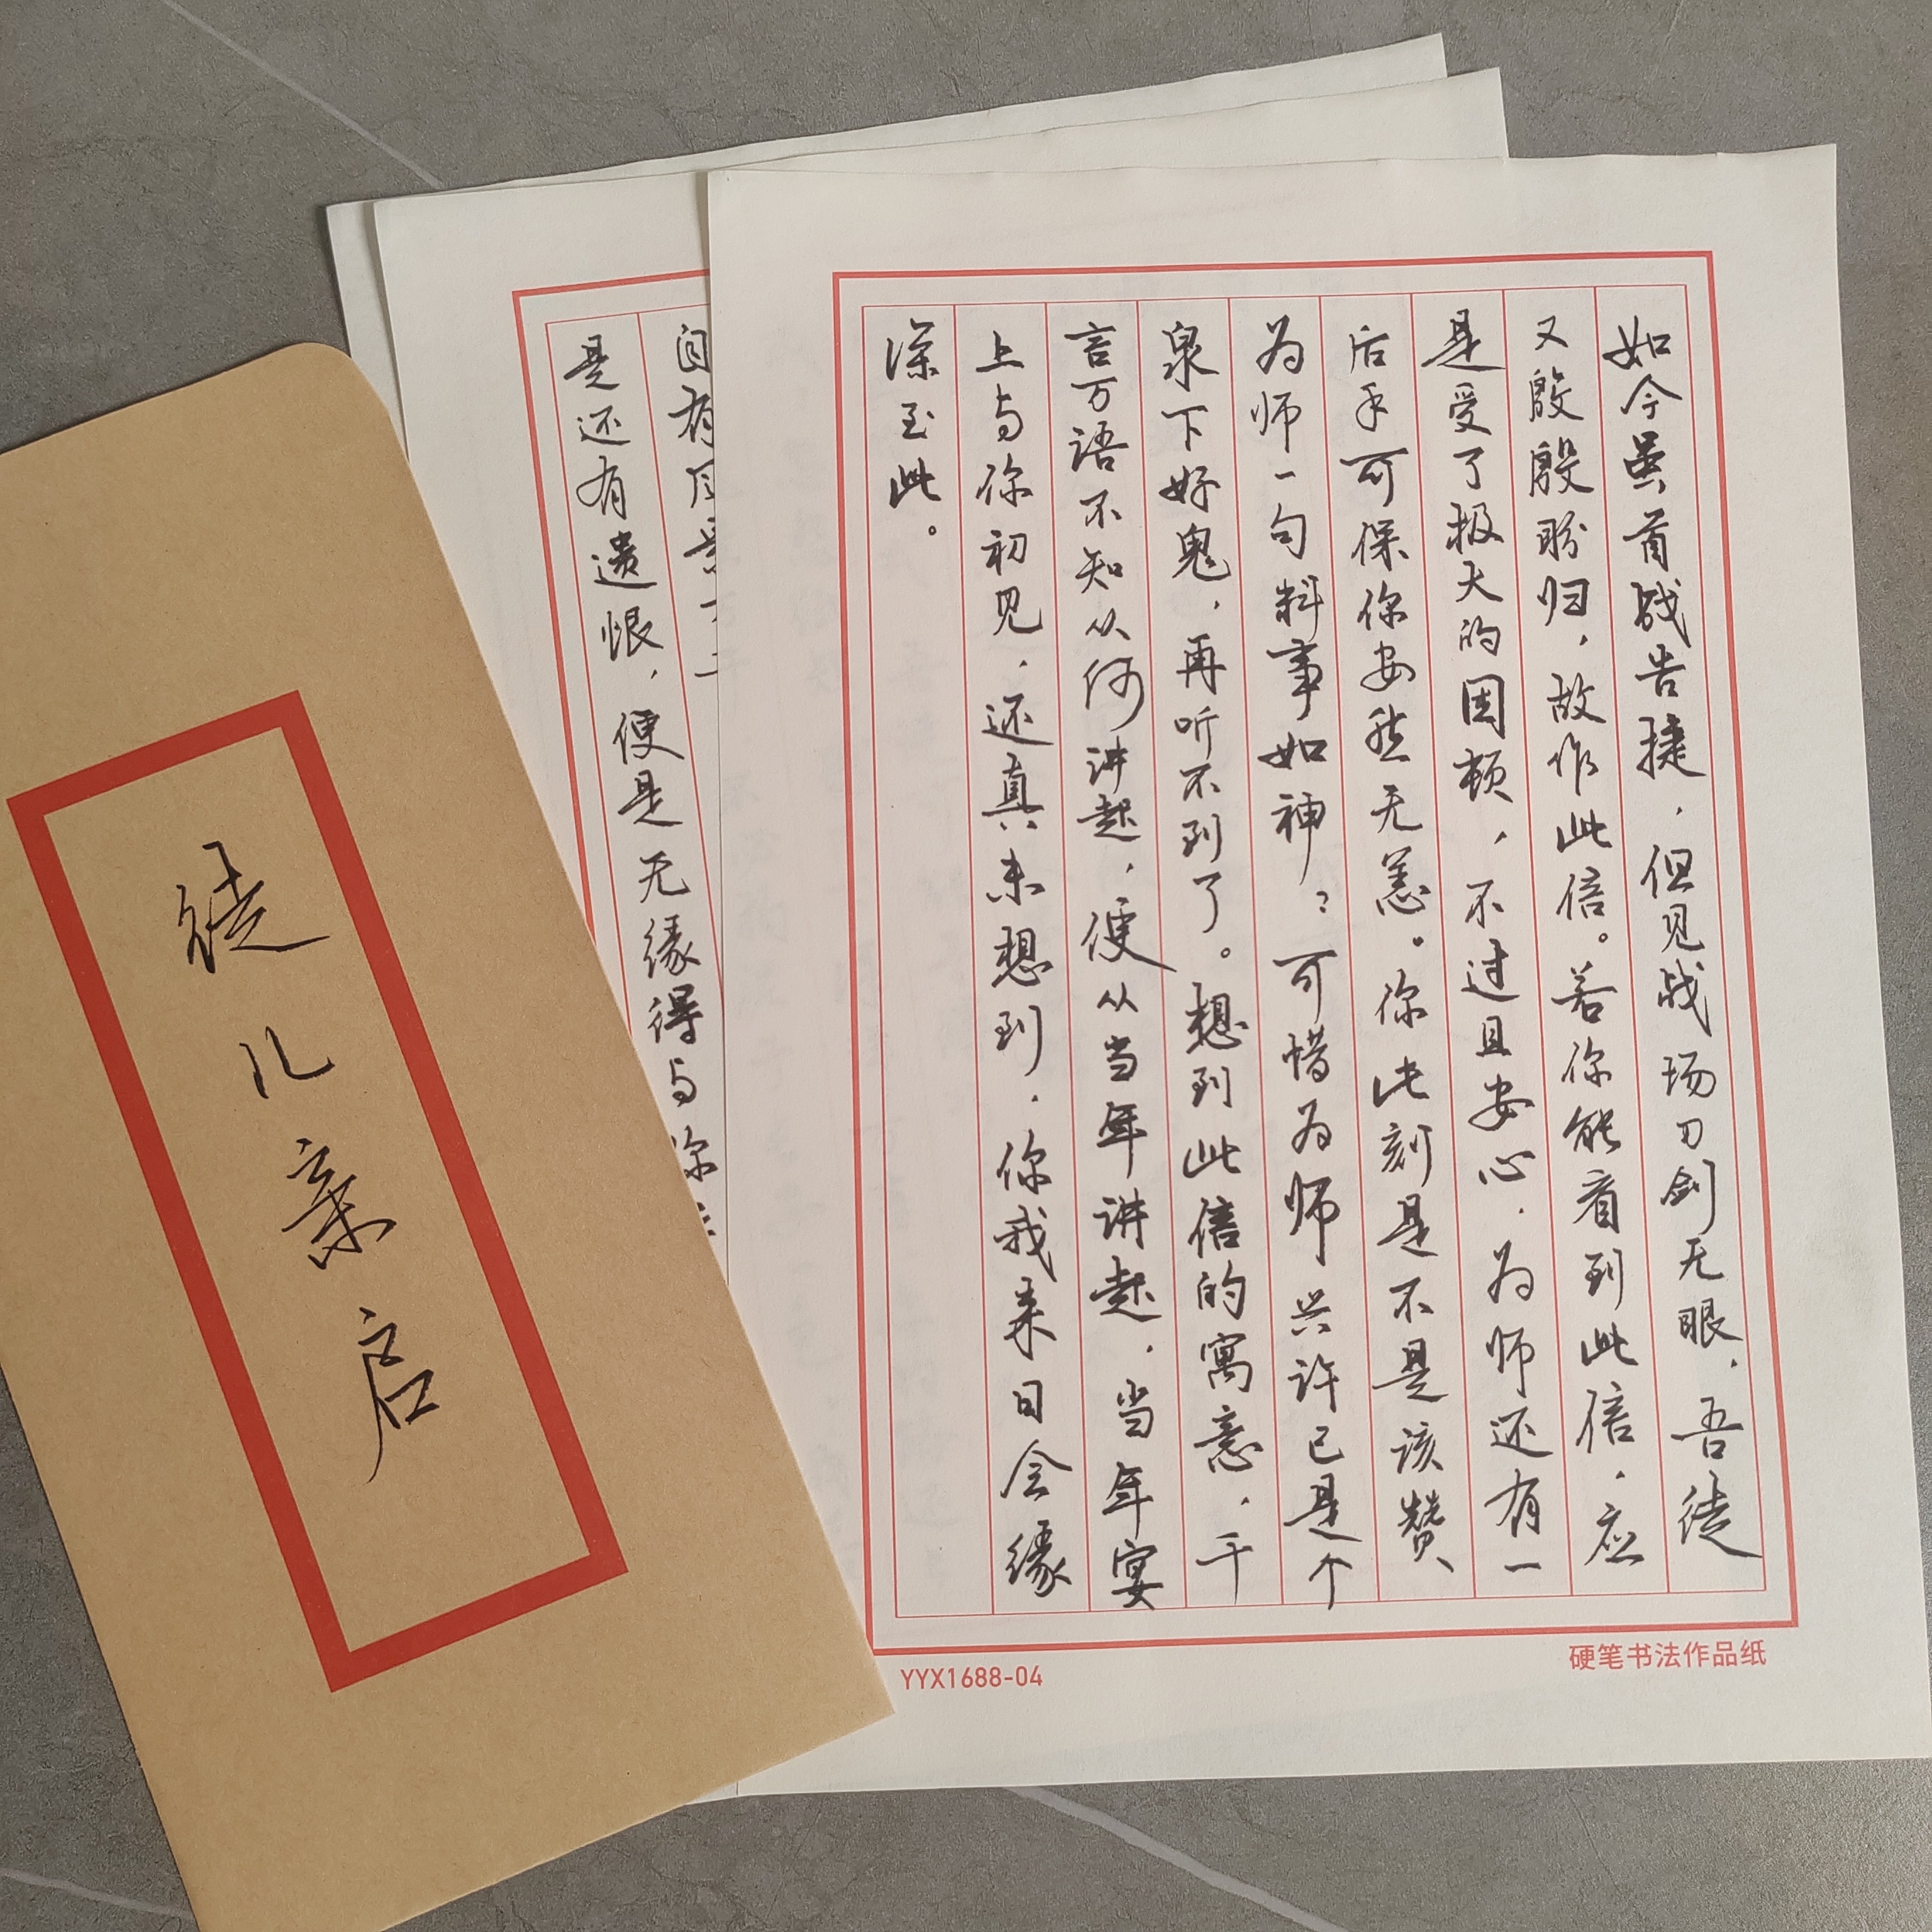 如今虽首战告捷，但见战场刀剑无眼，吾徒
又殷殷盼归，故作此信。若你能看到此信，应
是受了极大的困顿，不过且安心，为师还有一
后手可保你安然无恙。你此刻是不是该赞
为师一句料事如神？可惜为师兴许已是个
泉下好鬼，再听不到了。想到此信的寓意，千
言万语不知从何讲起，便从当年讲起，当年宴
上与你初见，还真未想到，你我来日会缘
深至此。
YYX1688-04
硬笔书法作品纸
自有风景
是还有遗恨，便是无缘得与你
徒儿亲启